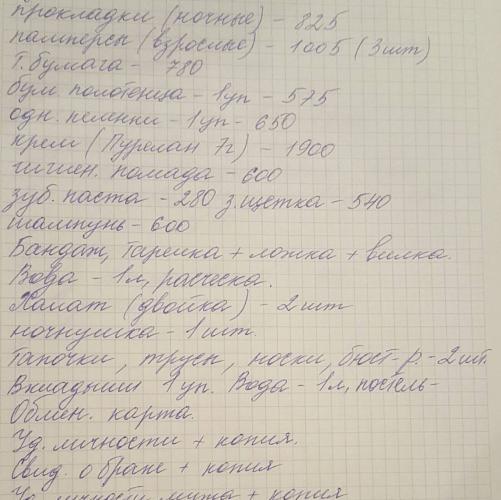 прокладки (ночные) - 825
памперсы (взрослые) - 1005 (3шт)
т.бумага - 780
бум. полотенца - 1уп - 575
одн. пеленки - 1уп - 650
крем (Пурелан 7г) - 1900
гигиен. помада - 600
зуб. паста - 280 з.щетка - 540
шампунь - 600
Бандаж, тарелка + ложка + вилка.
Вода - 1л, расческа.
Халат (двойка) - 2шт
ночнушка - 1шт.
Тапочки, трусы, носки, бюст-р. - 2шт.
Вкладыши 1уп. Вода - 1л, постель-
Обмен. карта.
Уд. личности + копия.
Свид. о браке + копия
Уд. личности мужа + копия